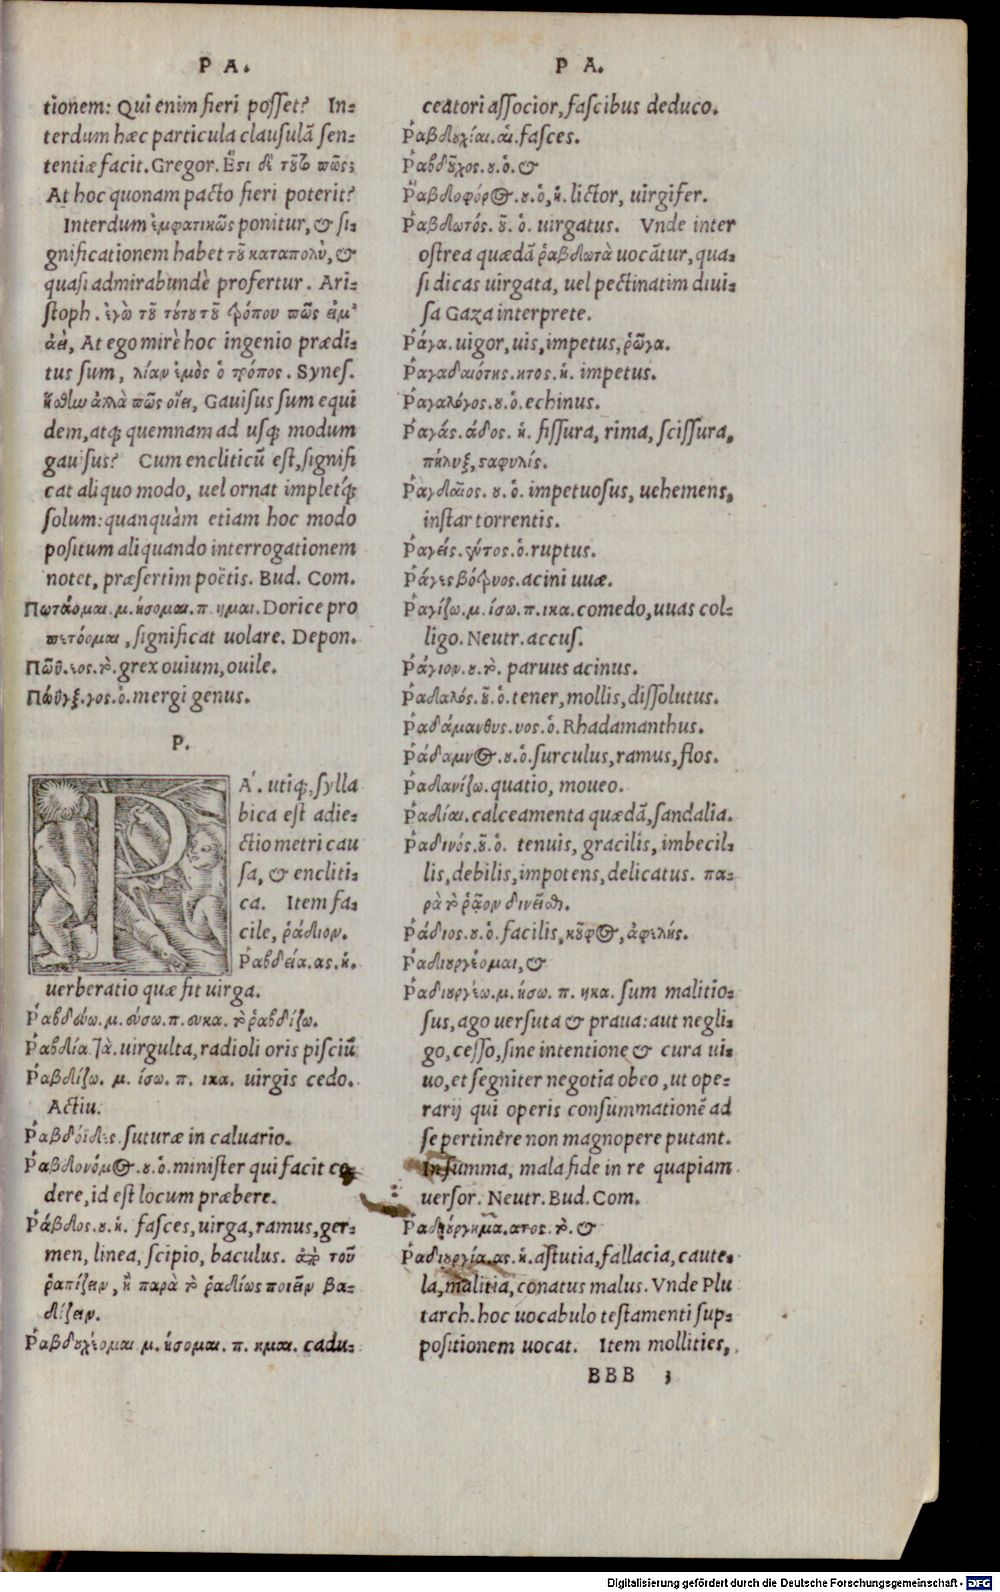 Ρ Α.
tionem: Qui enim fieri posset? In-
terdum hæc particula clausulā sen-
tentiæ facit. Gregor. Ἔςι δὲ τοῦτο πῶς;
At hoc quonam pacto fieri poterit?
Interdum ἐμφατικῶς ponitur, & si-
gnificationem habet τοῦ καταπολὺ, &
quasi admirabundè profertur. Ari-
stoph. ἐγὼ τοῦ τούτου τοῦ τρόπου πῶς εἰμ'
ἀεὶ, At ego mirè hoc ingenio prædi-
tus sum, λίαν ἐμὸς ὁ τρόπος. Synes.
ἥσθίω ἀλλὰ πῶς οἴει, Gauisus sum equi
dem, atq; quemnam ad usq; modum
gauisus? Cum encliticū est, signifi
cat aliquo modo, uel ornat impletq́;
solum: quanquàm etiam hoc modo
positum aliquando interrogationem
notet, præsertim poëtis. Bud. Com.
Πωτάομαι. μ. ήσομαι. π. ημαι. Dorice pro
πετόομαι, significat uolare. Depon.
Πῶϋ. εος. τὸ. grex ouium, ouile.
Πώϋγξ. γος. ὁ. mergi genus.
Ρ.
Α΄. utiq;, sylla
bica est adie-
ctio metri cau
sa, & encliti-
ca. Item fa-
cile, ῥάδιον.
Ῥαβδεία. ας. ἡ.
uerberatio quæ fit uirga.
Ῥαβδεύω. μ. εύσω. π. ευκα. τὸ ῥαβδίζω.
Ῥαβδία. τὰ. uirgulta, radioli oris pisciū
Ῥαβδίζω. μ. ίσω. π. ικα. uirgis cedo.
Actiu.
Ῥαβδόϊδες. suturæ in caluario.
Ῥαβδονόμος. ου. ὁ. minister qui facit ce-
dere, id est locum præbere.
Ῥάβδος. ου. ἡ. fasces, uirga, ramus, ger-
men, linea, scipio, baculus. ἀπὸ τοῦ
ῥαπίζειν, ἢ παρὰ τὸ ῥαδίως ποιεῖν βα-
δίζειν.
Ῥαβδουχέομαι. μ. ήσομαι. π. ημαι. cadu-
Ρ Α.
ceatori associor, fascibus deduco.
Ῥαβδουχίαι. αἱ. fasces.
Ῥαβδοῦχος. ου. ὁ. &
Ῥαβδοφόρος. ου. ὁ, ἡ. lictor, uirgifer.
Ῥαβδωτός. οῦ. ὁ. uirgatus. Vnde inter
ostrea quædā ῥαβδωτὰ uocātur, qua-
si dicas uirgata, uel pectinatim diui-
sa Gaza interprete.
Ῥάγα. uigor, uis, impetus, ῥῶγα.
Ῥαγαδαιότης. ητος. ἡ. impetus.
Ῥαγαλόγος. ου. ὁ. echinus.
Ῥαγάς. άδος. ἡ. fissura, rima, scissura,
πήλυξ, ςαφυλίς.
Ῥαγδαῖος. ου. ὁ. impetuosus, uehemens,
instar torrentis.
Ῥαγείς. έντος. ὁ. ruptus.
Ῥάγες βότρυος. acini uuæ.
Ῥαγίζω. μ. ίσω. π. ικα. comedo, uuas col-
ligo. Neutr. accus.
Ῥάγιον. ου. τὸ. paruus acinus.
Ῥαδαλός. οῦ. ὁ. tener, mollis, dissolutus.
Ῥαδάμανθυς. υος. ὁ. Rhadamanthus.
Ῥάδαμνος. ου. ὁ. surculus, ramus, flos.
Ῥαδανίζω. quatio, moueo.
Ῥαδίαι. calceamenta quædā, sandalia.
Ῥαδινός. οῦ. ὁ. tenuis, gracilis, imbecil-
lis, debilis, impotens, delicatus. πα-
ρὰ τὸ ῥᾷον δινεῖσθαι.
Ῥάδιος. ου. ὁ. facilis, κοῦφος, ἀφελής.
Ῥαδιουργέομαι, &
Ῥαδιουργέω. μ. ήσω. π. ηκα. sum malitio-
sus, ago uersuta & praua: aut negli-
go, cesso, sine intentione & cura ui-
uo, et segniter negotia obeo, ut ope-
rarij qui operis consummationē ad
se pertinêre non magnopere putant.
In summa, mala fide in re quapiam
uersor. Neutr. Bud. Com.
Ῥαδιούργημα. ατος. τὸ. &
Ῥαδιουργία. ας. ἡ. astutia, fallacia, caute-
la, malitia, conatus malus. Vnde Plu
tarch. hoc uocabulo testamenti sup-
positionem uocat. Item mollities,
BBB 3
Digitalisierung gefördert durch die Deutsche Forschungsgemeinschaft - DFG